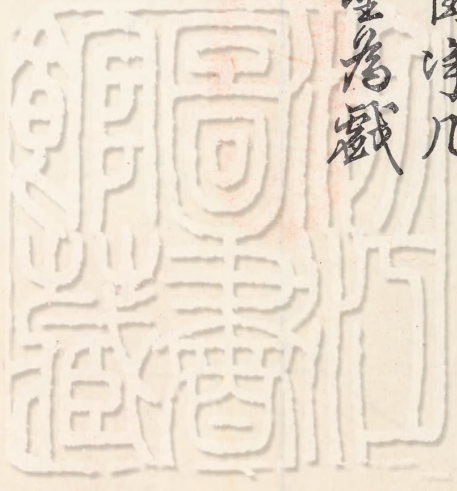 净几
為戲
浙江
圖書
館藏